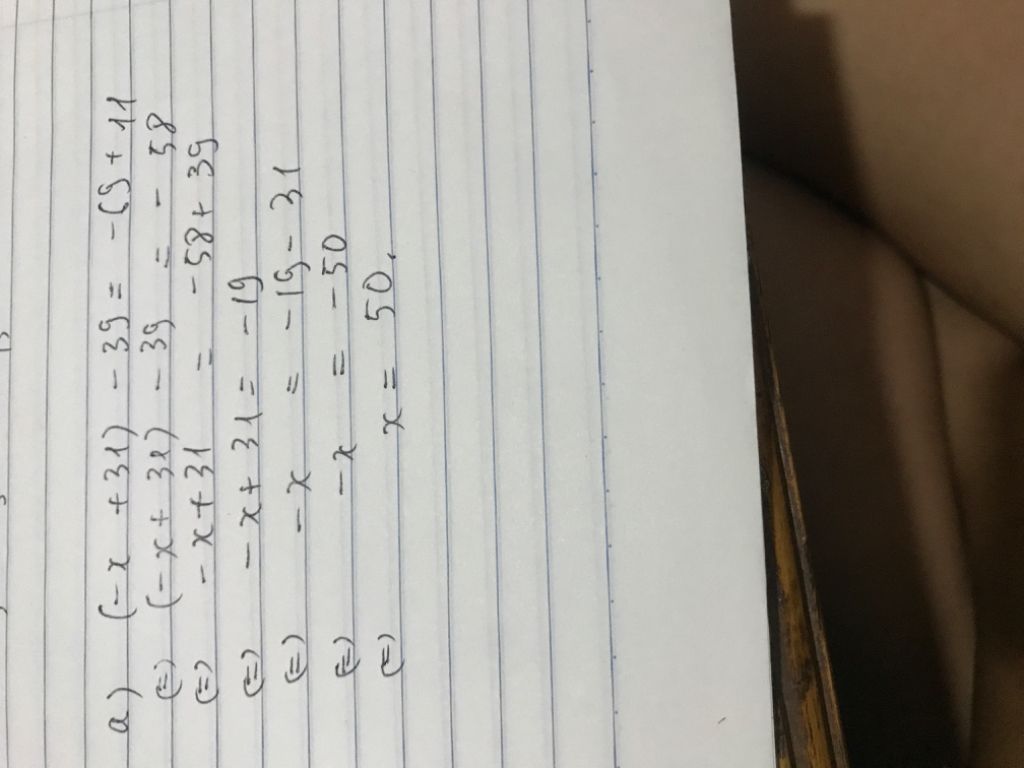 a) (-x + 31) - 39 = -69 + 11
(=) (-x + 31) - 39 = - 58
(=) -x + 31 = -58 + 39
(=) -x + 31 = -19
(=) -x = -19 - 31
(=) -x = -50
(=) x = 50.